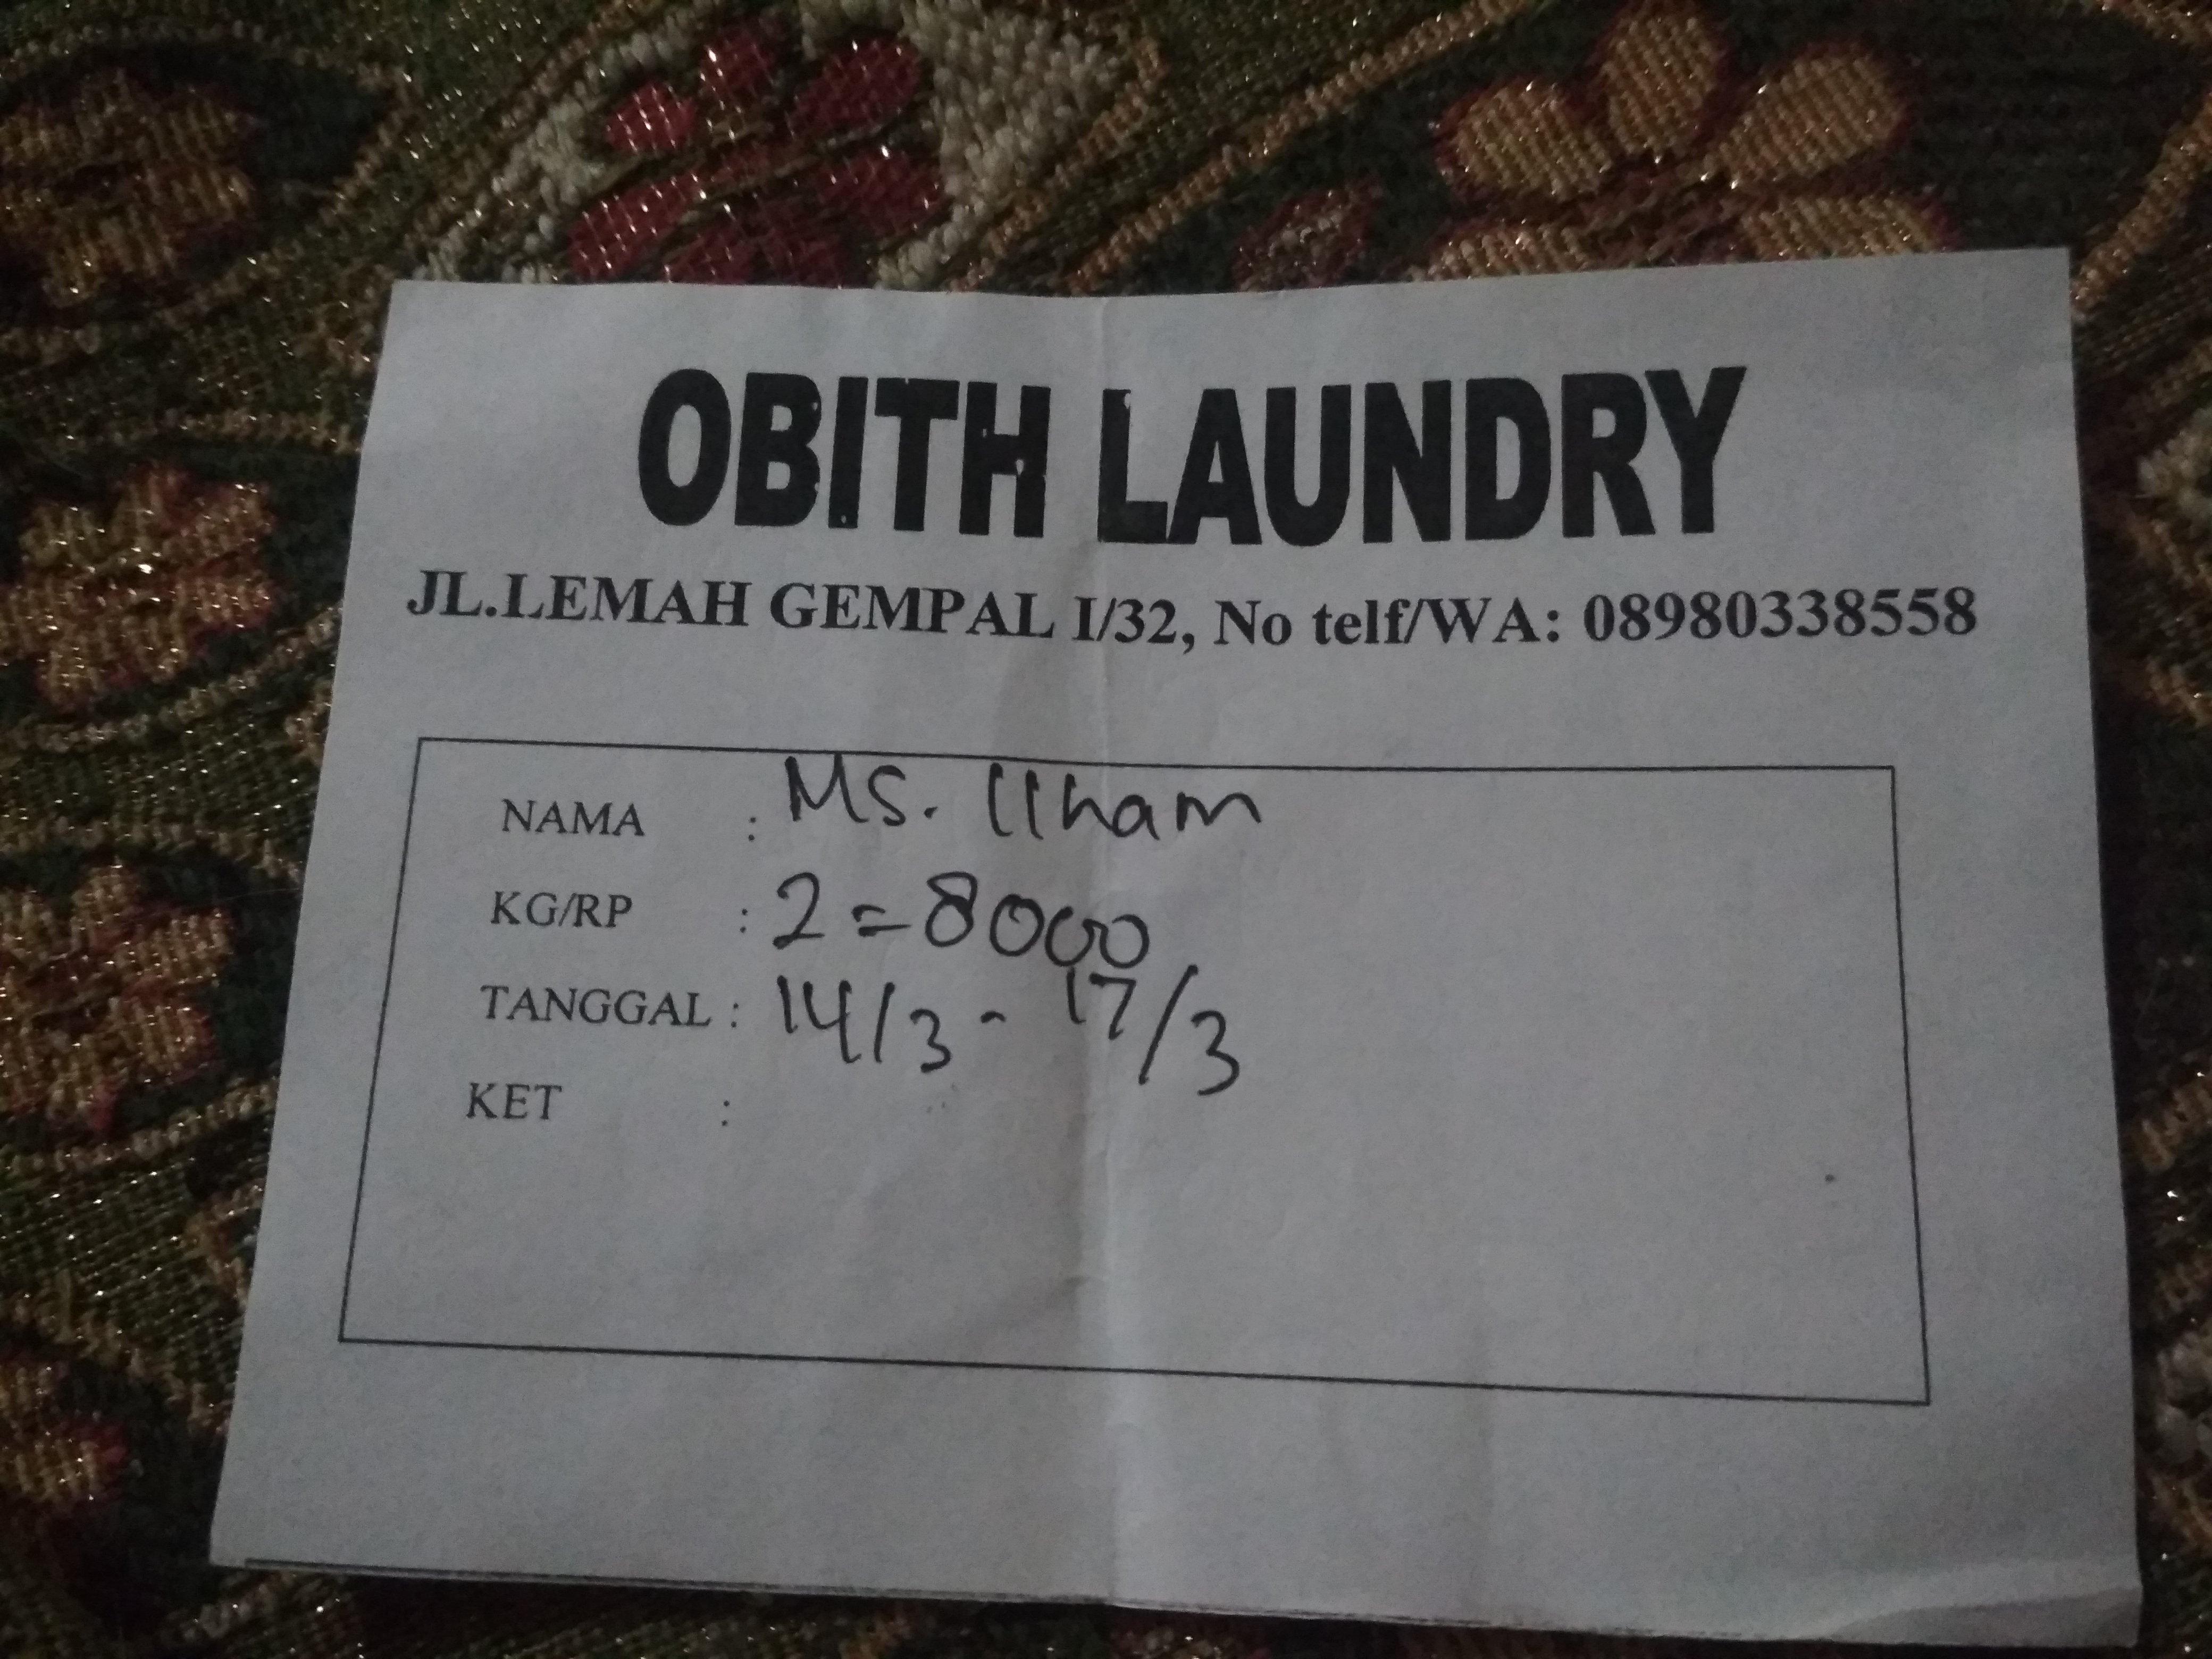 OBITH LAUNDRY
JL.LEMAH GEMPAL I/32, No telf/WA: 08980338558
NAMA : Ms. Ilham
KG/RP : 2 = 8000
TANGGAL : 14/3 - 17/3
KET :